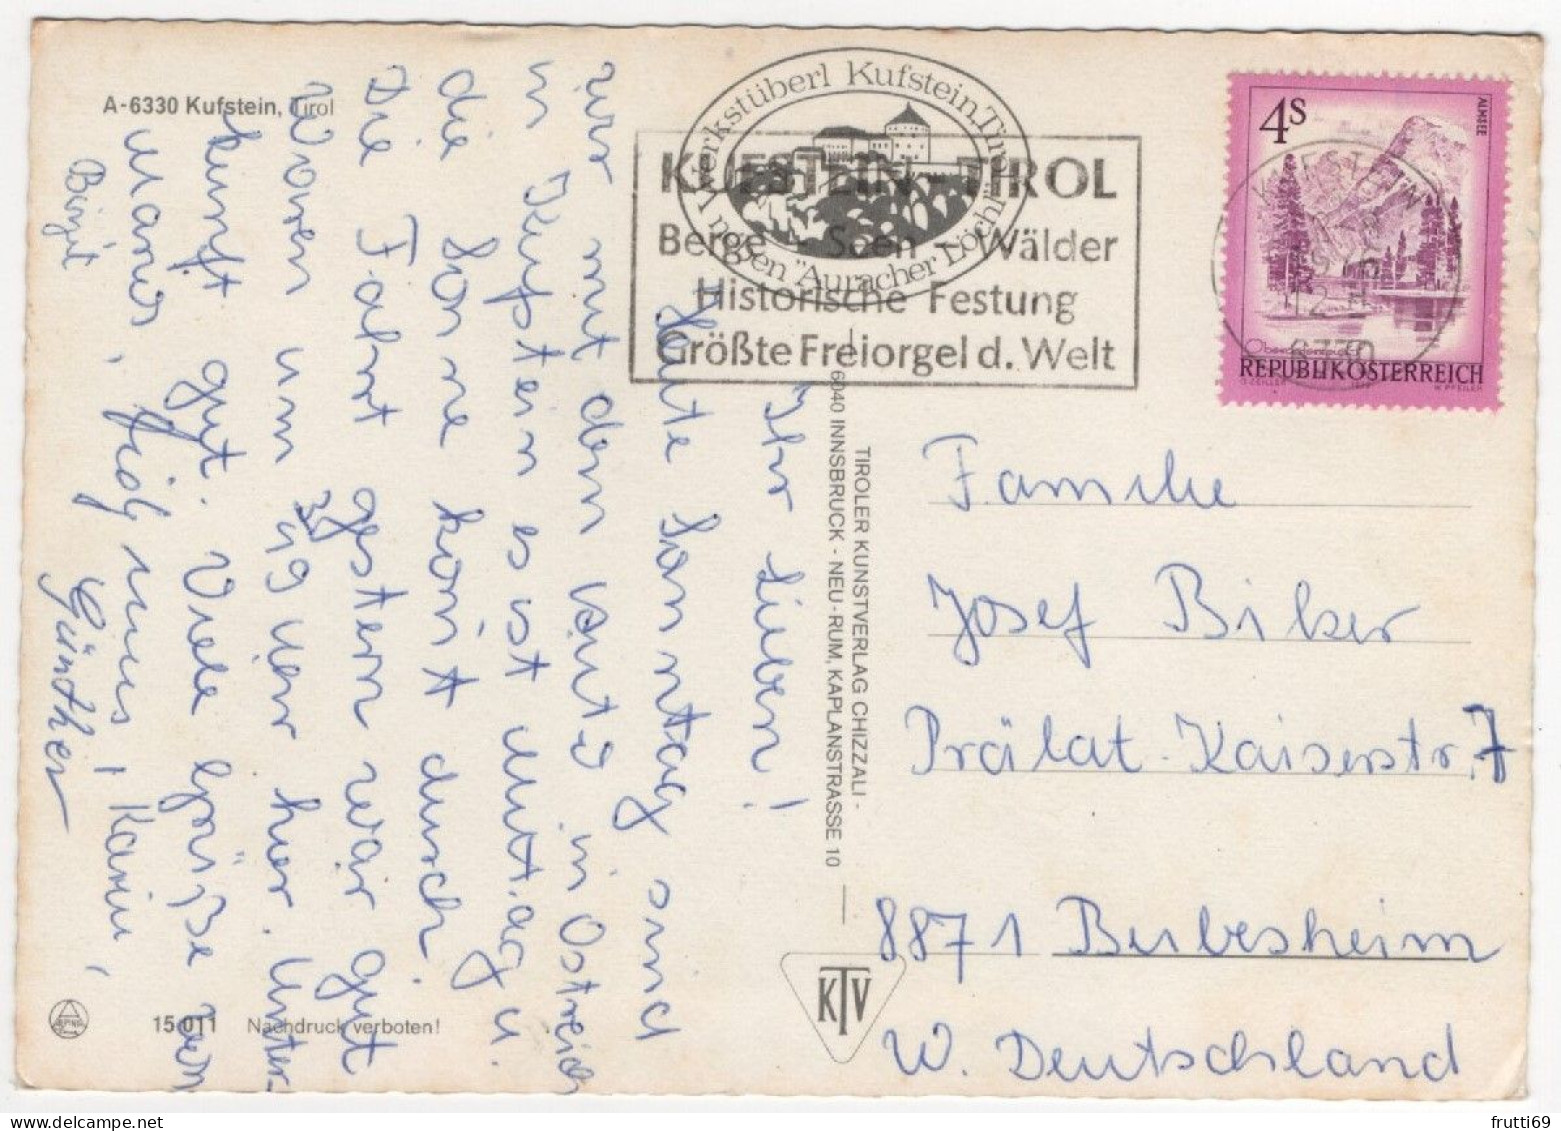 A-6330 Kufstein, Tirol
Werkstüberl Kufstein, Tirol
"Auracher Löchl"
KUFSTEIN TIROL
Berge - Seen - Wälder
Historische Festung
Größte Freiorgel d. Welt
4S
ALMSEE
KUFSTEIN
6330
REPUBLIK ÖSTERREICH
Ihr Lieben!
Heute Sonntag sind
wir mit dem Auto in Östreich
in Kufstein es ist Mittag u.
die Sonne komt durch.
Die Fahrt gestern war gut
Waren um hier. Unter-
kunft gut. Viele Grüße von
Maria, Karin,
Birgit Günther
TIROLER KUNSTVERLAG CHIZZALI -
6040 INNSBRUCK - NEU-RUM, KAPLANSTRASSE 10
Familie
Josef Biker
Prälat-Kaiserstr. 7
8871 Bubesheim
W. Deutschland
KTV
15 011 Nachdruck verboten!
frutti69